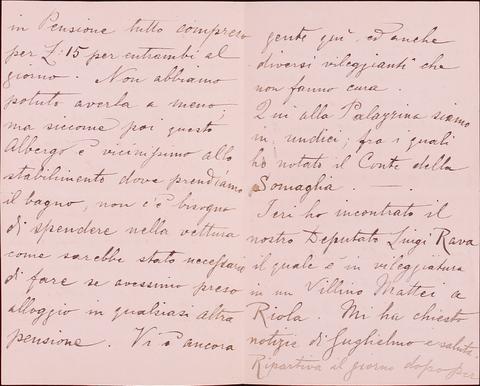 in Pensione tutto compreso
per £: 15 per entrambi al
giorno. Non abbiamo
potuto averla a meno;
ma siccome poi questo
Albergo è vicinissimo allo
stabilimento dove prendiamo
il bagno, non c'è bisogno
di spendere nella vettura
come sarebbe stato necessario
di fare se avessimo preso
alloggio in qualsiasi altra
pensione. Vi è ancora
gente qui ed anche
diversi villeggianti che
non fanno cura.
Qui alla Palazzina siamo
in undici; fra i quali
ho notato il Conte della
Somaglia. —. —
Ieri ho incontrato il
nostro Deputato Luigi Rava
il quale è in villeggiatura
in un Villino Mattei a
Riola. Mi ha chiesto
notizie di Guglielmo e saluta.
Ripartiva il giorno dopo per